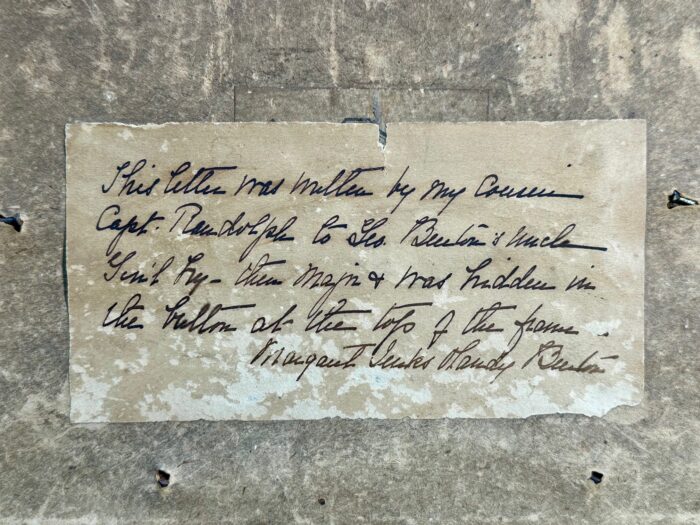 This letter was written by my Cousin
Capt. Randolph to Geo. Benton's uncle
Gen'l Fry - then Major & was hidden in
the button at the top of the frame.
Margaret Jenks Handy Benton